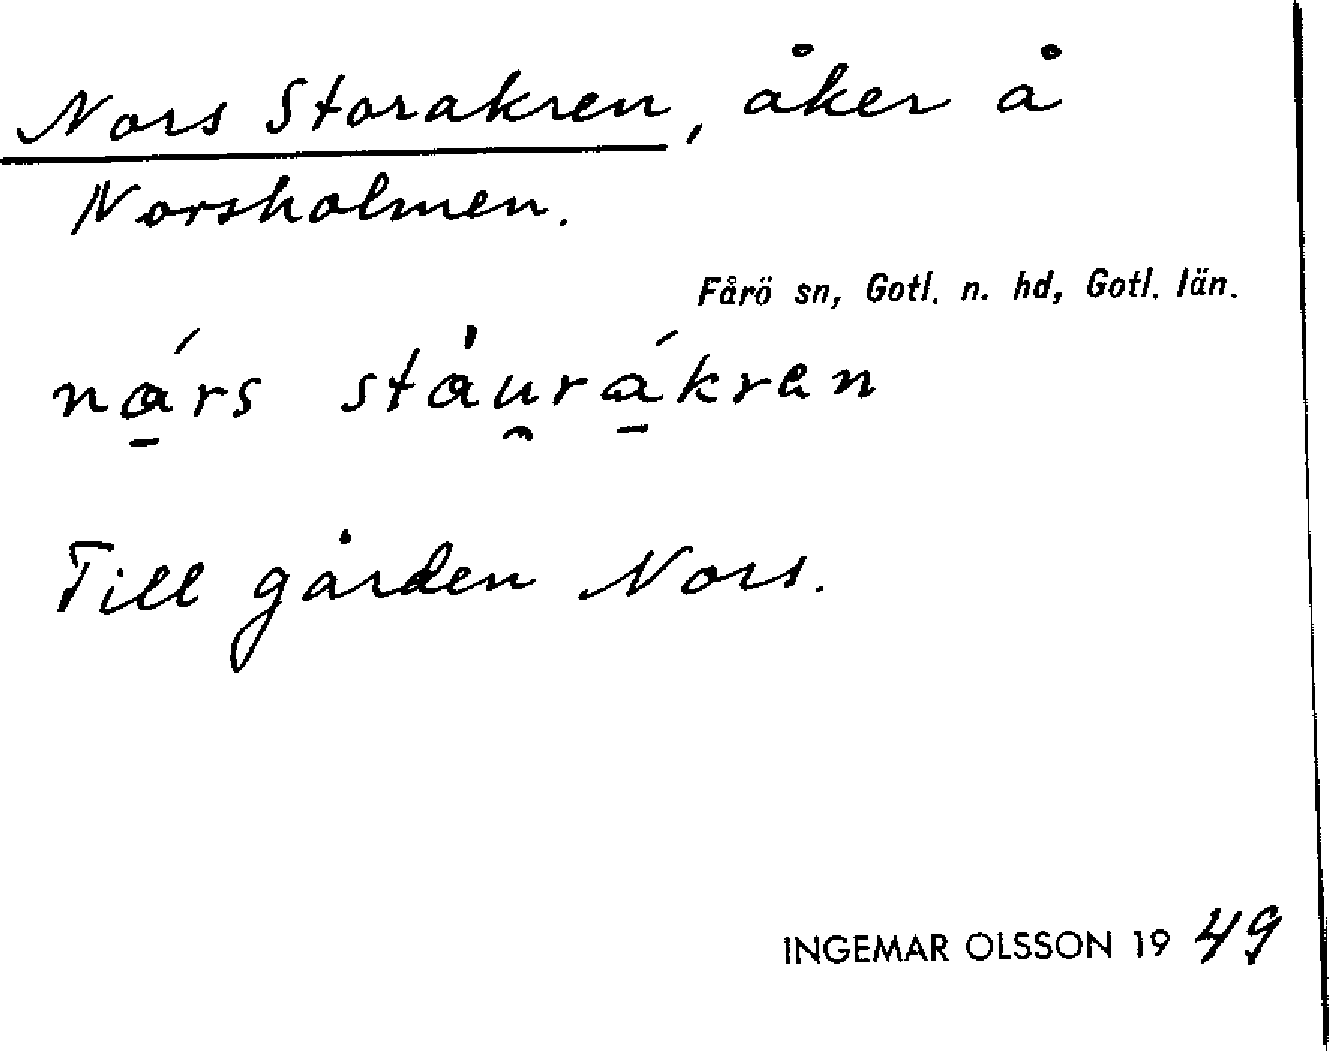 Nors Storakren, åker å
Norsholmen.
Fårö sn, Gotl. n. hd, Gotl. län.
ná̱rs stȧu̯rá̱kren
Till gården Nors.
INGEMAR OLSSON 19 49